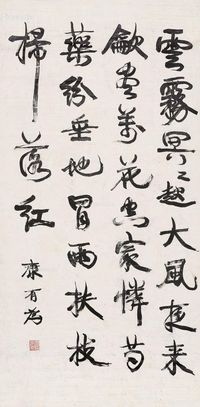 雲霧冥〻起大風捲来
歘盡萬花空冣憐芍
藥紛垂地冒雨扶枝
掃落紅
康有為